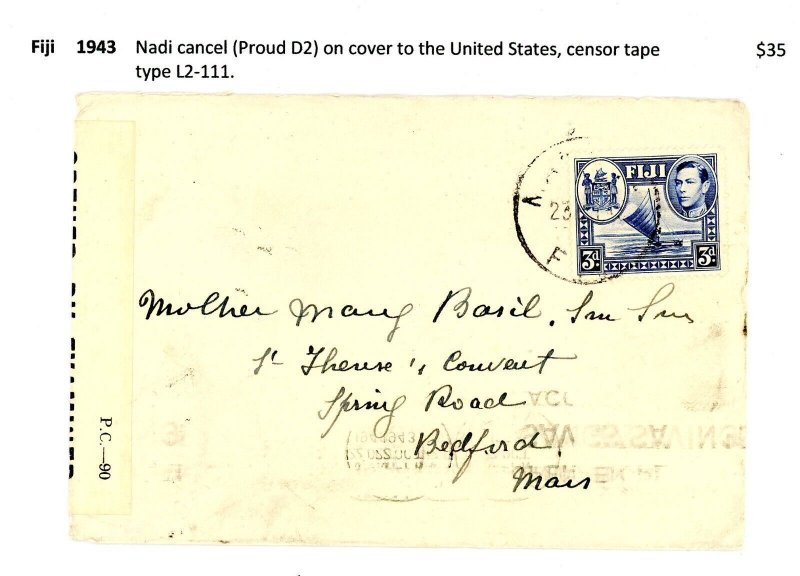 Fiji 1943 Nadi cancel (Proud D2) on cover to the United States, censor tape $35
type L2-111.
FIJI
23
F
3d 3d
Mother Mary Basil, Sm Sm
St Therese's Convent
Spring Road
Bedford
Mass
P.C.—90